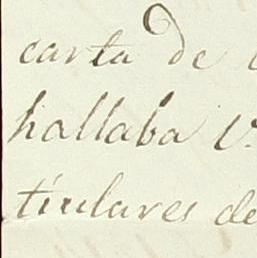 carta de
hallaba V.
titulares de